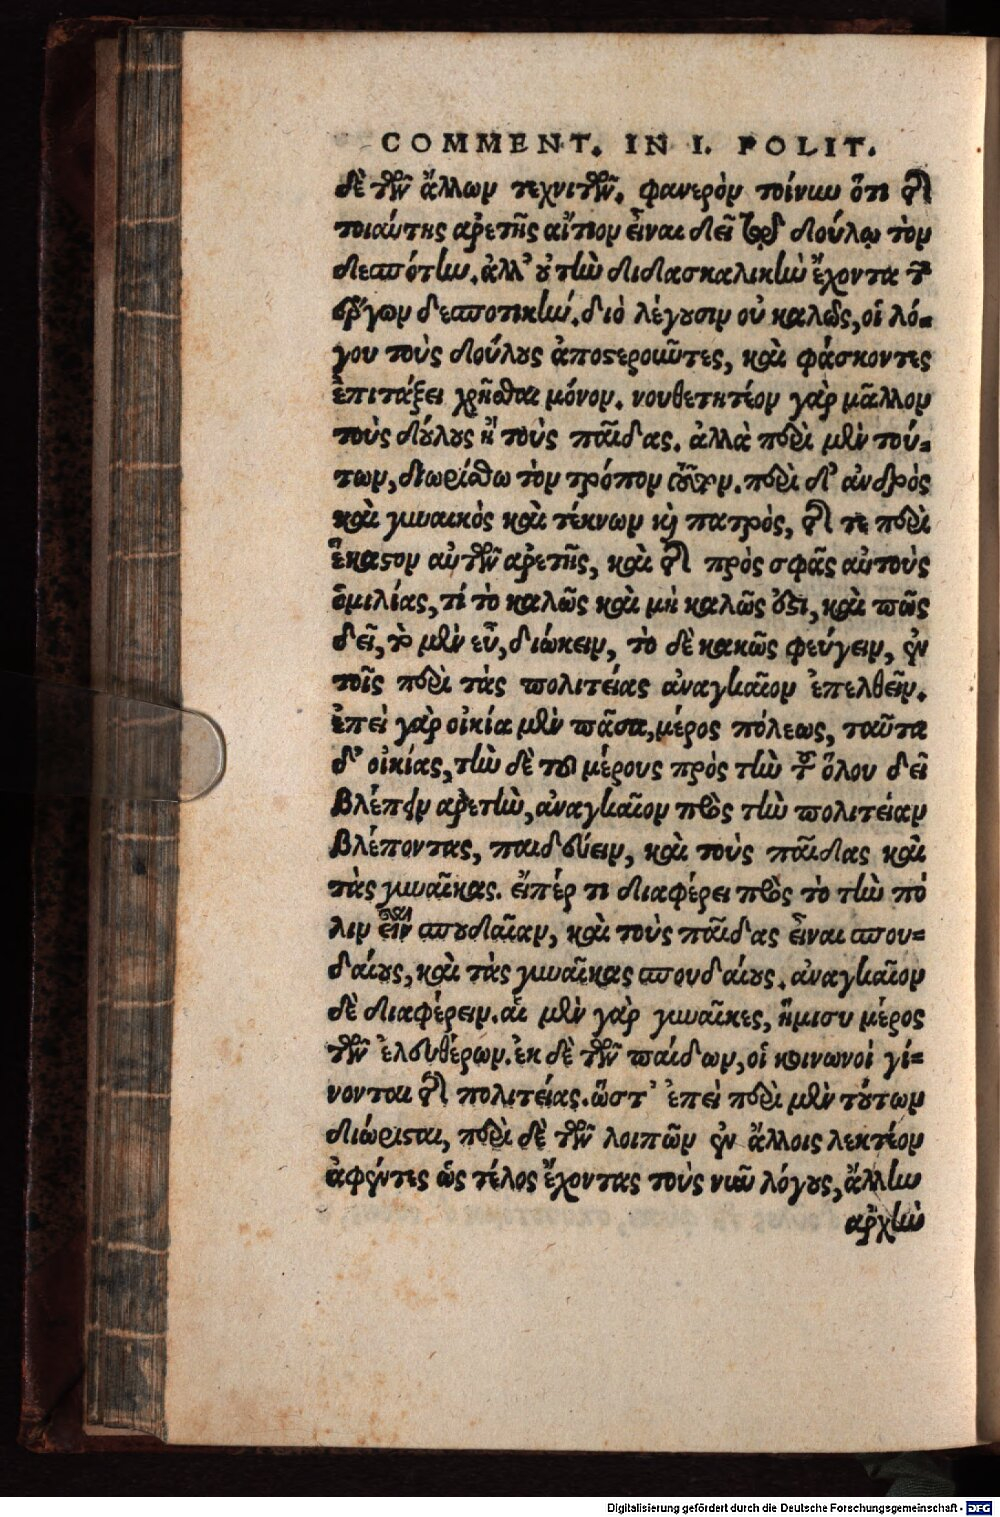 COMMENT. IN I. POLIT.
δὲ τῶν ἄλλων τεχνιτῶν. φανερὸν τοίνυν ὅτι τῆς
τοιαύτης ἀρετῆς αἴτιον εἶναι δεῖ τῷ δούλῳ τὸν
δεσπότην. ἀλλ' οὐ τὴν διδασκαλικὴν ἔχοντα τῶν
ἔργων δεσποτικήν. διὸ λέγουσιν οὐ καλῶς, οἱ λό-
γου τοὺς δούλους ἀποστεροῦντες, καὶ φάσκοντες
ἐπιτάξει χρῆσθαι μόνον. νουθετητέον γὰρ μᾶλλον
τοὺς δούλους ἢ τοὺς παῖδας. ἀλλὰ περὶ μὲν τού-
των, διωρίσθω τὸν τρόπον τοῦτον. περὶ δ' ἀνδρὸς
καὶ γυναικὸς καὶ τέκνων καὶ πατρὸς, τῆς τε περὶ
ἕκαστον αὐτῶν ἀρετῆς, καὶ τῆς πρὸς σφᾶς αὐτοὺς
ὁμιλίας, τί τὸ καλῶς καὶ μὴ καλῶς ἐστι, καὶ πῶς
δεῖ, τὸ μὲν εὖ, διώκειν, τὸ δὲ κακῶς φεύγειν, ἐν
τοῖς περὶ τὰς πολιτείας ἀναγκαῖον ἐπελθεῖν.
ἐπεὶ γὰρ οἰκία μὲν πᾶσα, μέρος πόλεως, ταῦτα
δ' οἰκίας, τὴν δὲ τοῦ μέρους πρὸς τὴν τοῦ ὅλου δεῖ
βλέπειν ἀρετὴν, ἀναγκαῖον πρὸς τὴν πολιτείαν
βλέποντας, παιδεύειν, καὶ τοὺς παῖδας καὶ
τὰς γυναῖκας. εἴπέρ τι διαφέρει πρὸς τὸ τὴν πό
λιν εἶναι σπουδαίαν, καὶ τοὺς παῖδας εἶναι σπου-
δαίους, καὶ τὰς γυναῖκας σπουδαίους. ἀναγκαῖον
δὲ διαφέρειν. αἱ μὲν γὰρ γυναῖκες, ἥμισυ μέρος
τῶν ἐλευθέρων. ἐκ δὲ τῶν παίδων, οἱ κοινωνοὶ γί-
νονται τῆς πολιτείας. ὥστ' ἐπεὶ περὶ μὲν τούτων
διώρισται, περὶ δὲ τῶν λοιπῶν ἐν ἄλλοις λεκτέον
ἀφέντες ὡς τέλος ἔχοντας τοὺς νῦν λόγους, ἄλλην
ἀρχὴν
Digitalisierung gefördert durch die Deutsche Forschungsgemeinschaft - DFG